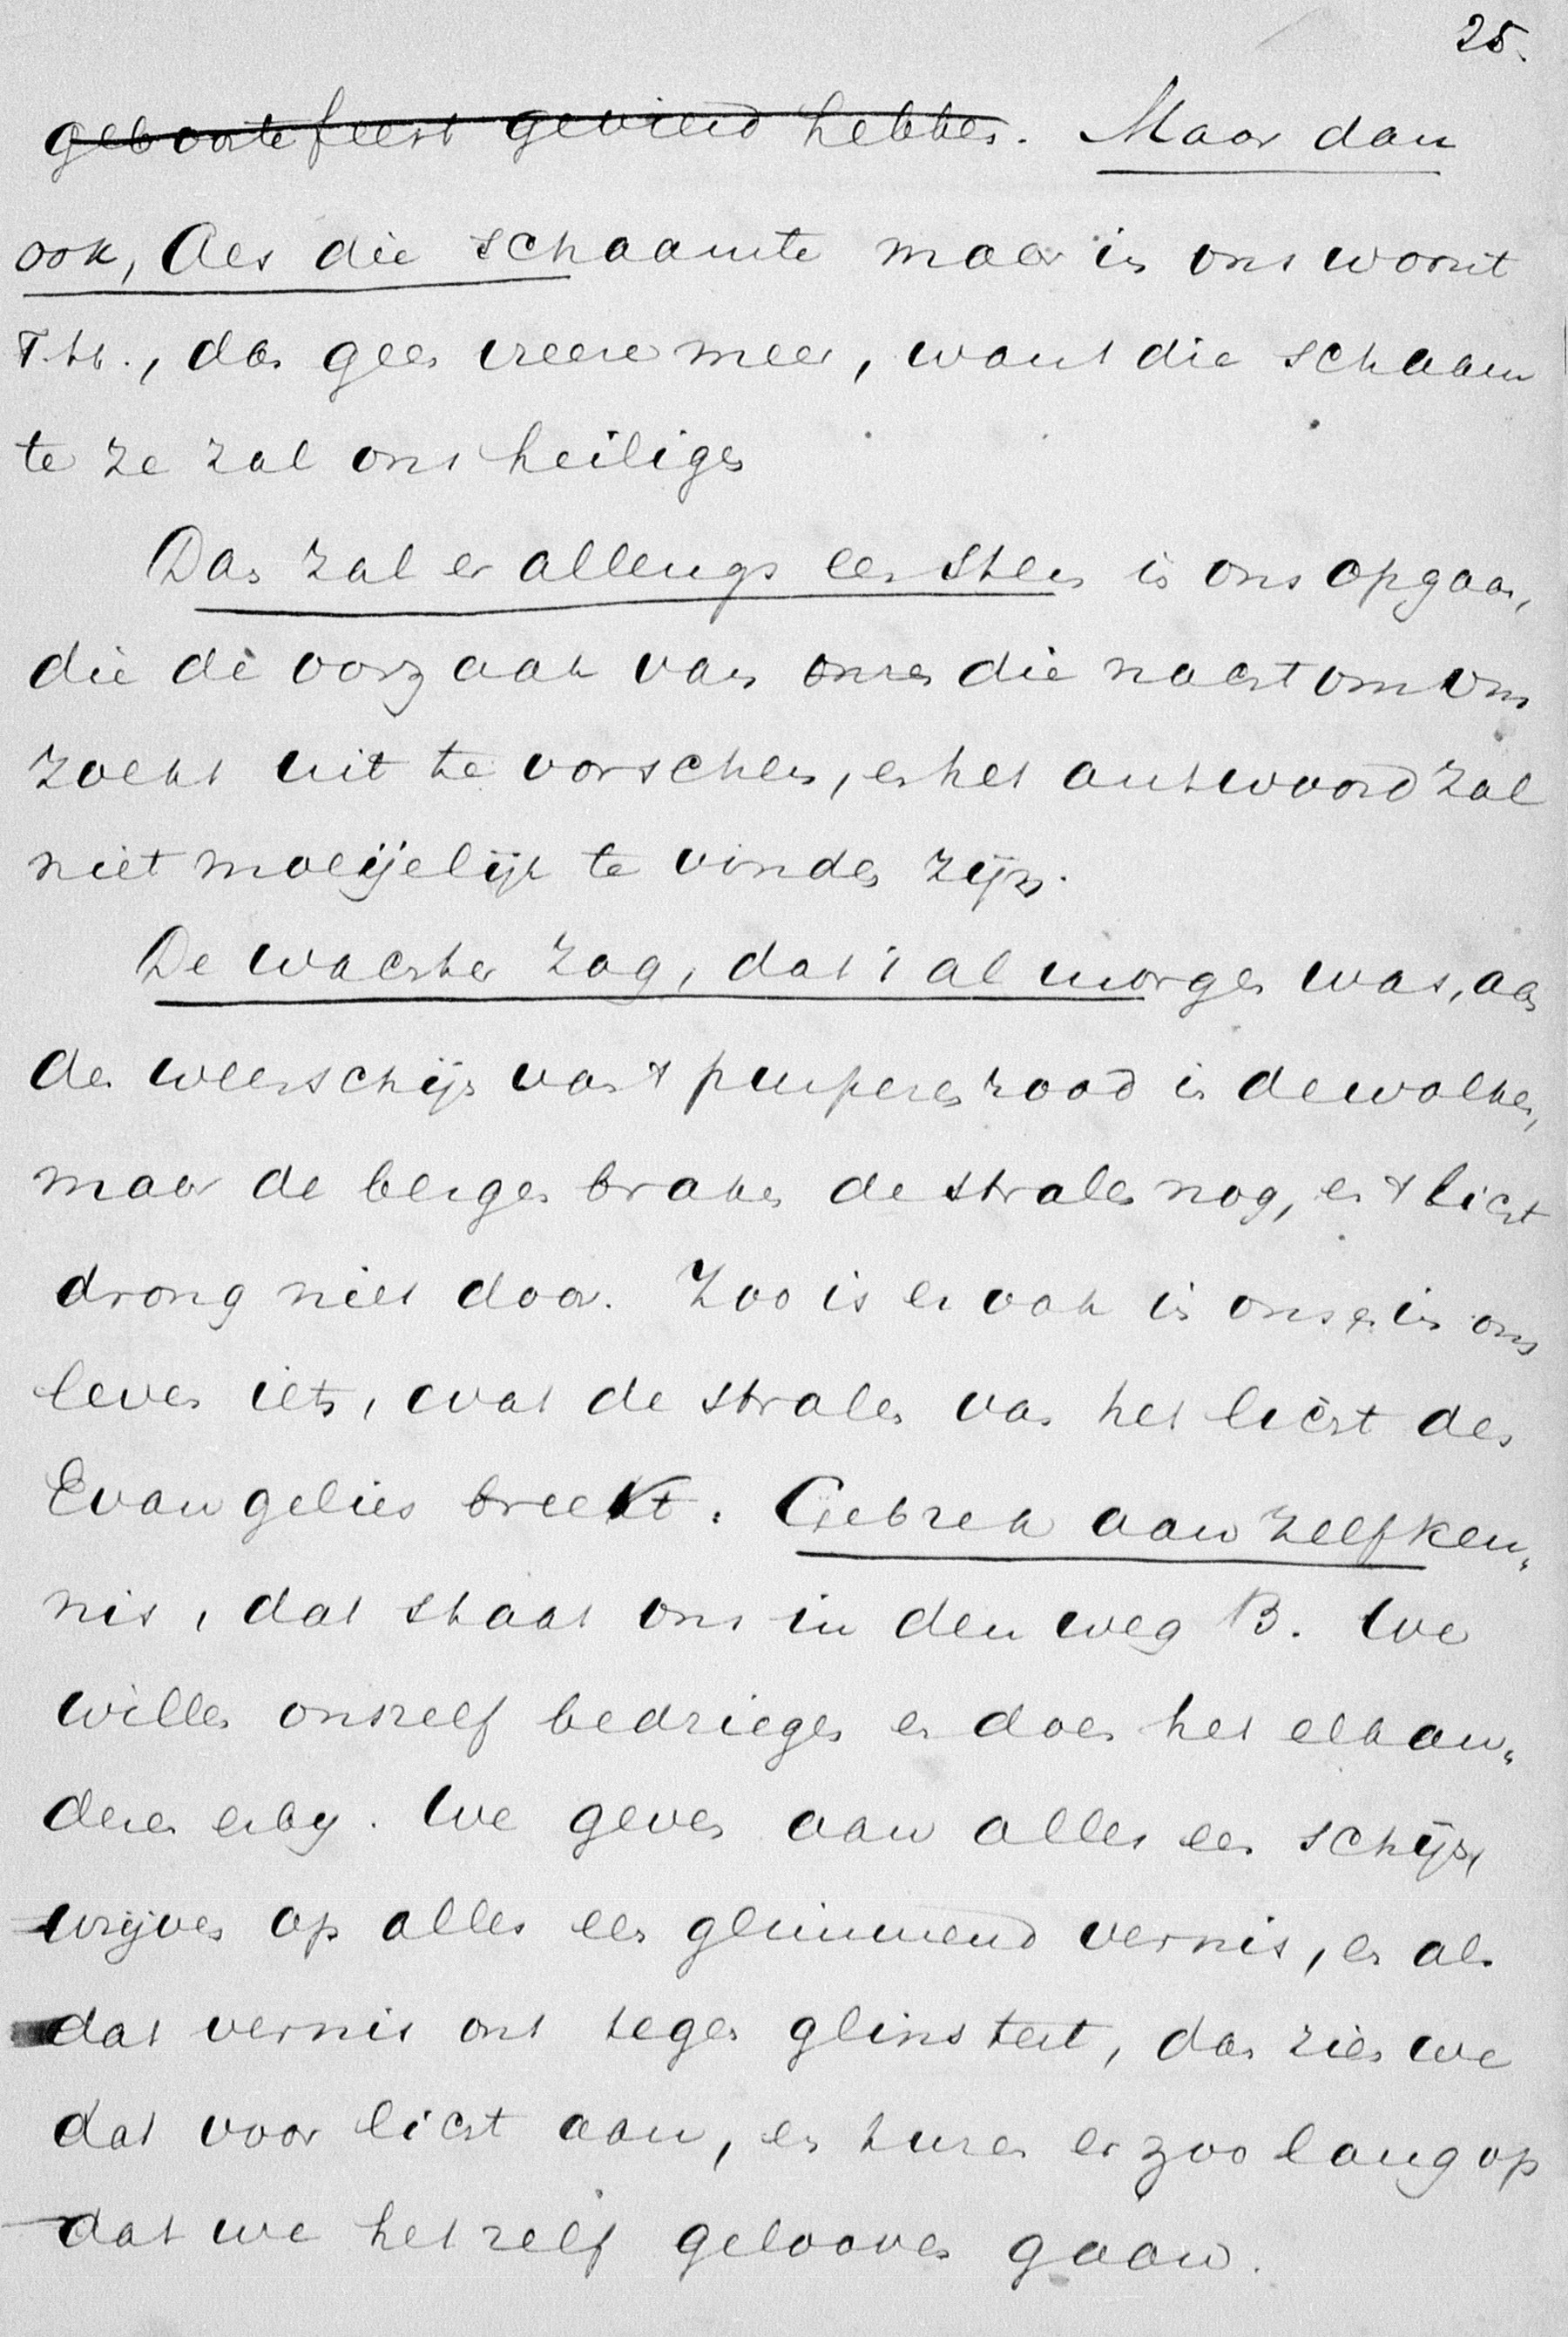 25.
geboortefeest gevierd hebben. Maar dan
ook, Als die schaamte maar in ons woont
T.H., dan geen vreeze meer, want die schaam
te ze zal ons heiligen
Dan zal er allengs een stem in ons opgaan,
die de oorzaak van onzen die nacht om ons
zoekt uit te vorschen, en het antwoord zal
niet moeijelijk te vinden zijn.
De wachter zag, dat 't al morgen was, aan
den weerschijn van 't purperen rood in de wolken,
maar de bergen braken de stralen nog, en 't licht
drong niet door. Zoo is er ook in ons en in ons
leven iets, wat de stralen van het licht des
Evangelies breekt. Gebrek aan zelfken„
nis, dat staat ons in den weg B. We
willen onszelf bedriegen en doen het elkan„
deren erby. We geven aan alles een schijn,
wrijven op alles een glimmend vernis, en als
dat vernis ons tegen glinstert, dan zien we
dat voor licht aan, en turen er zoo lang op
dat we het zelf gelooven gaan.